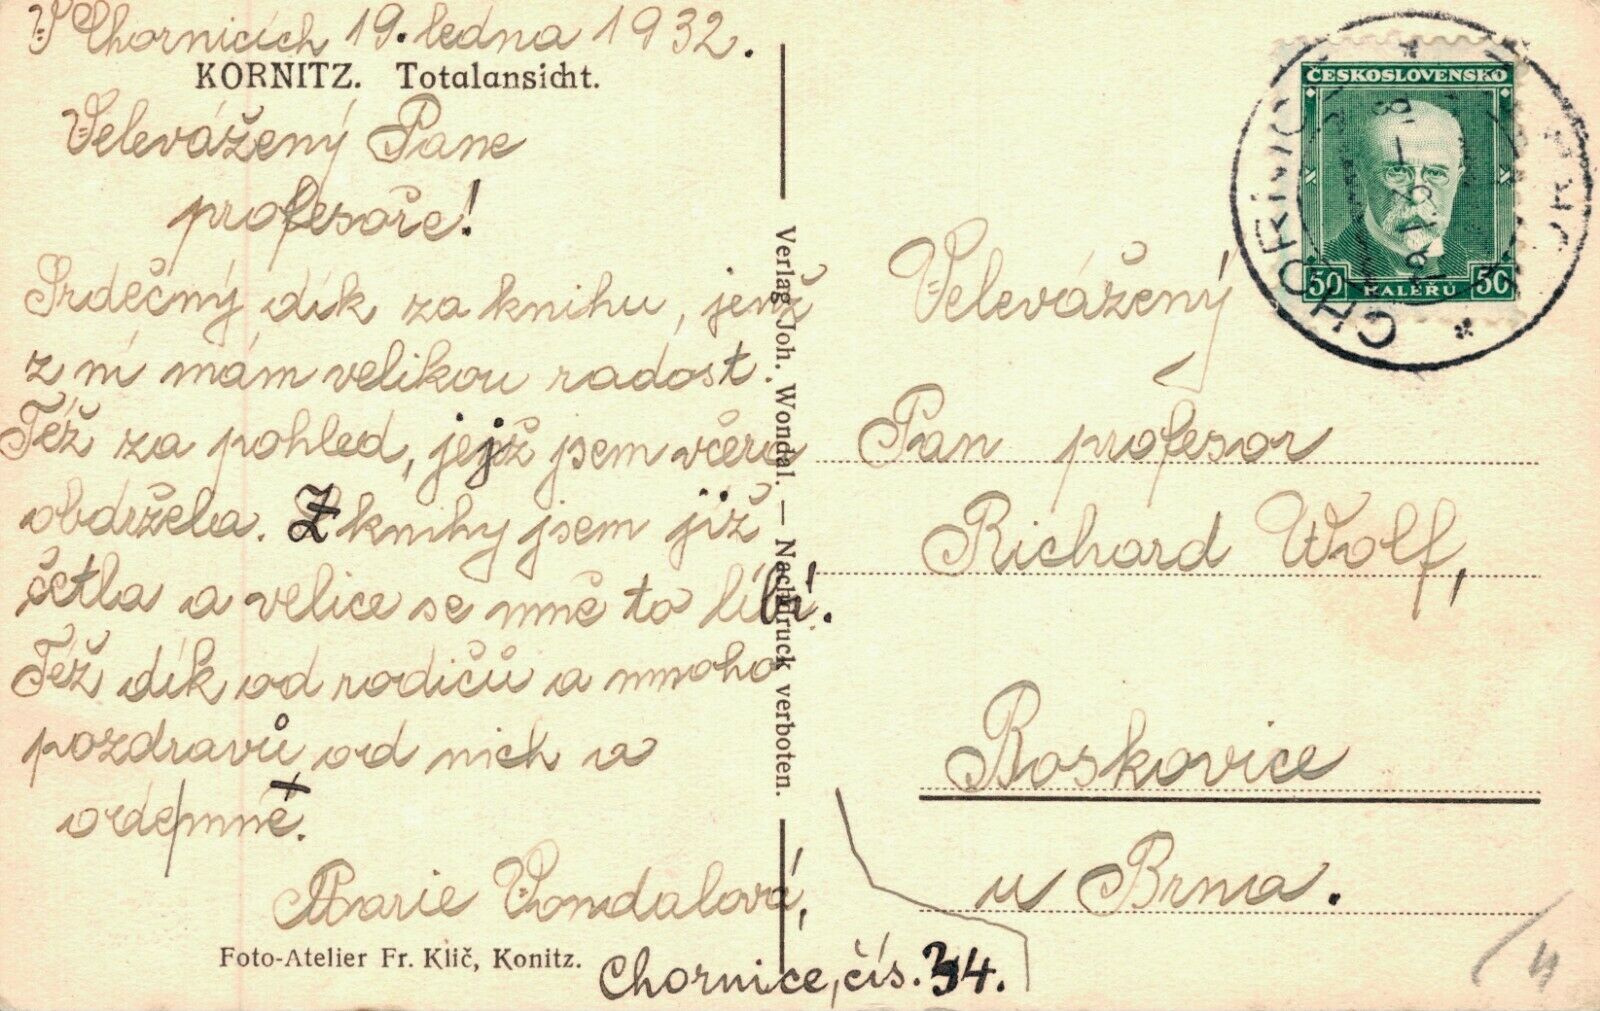 V Chornicích 19. ledna 1932.
KORNITZ. Totalansicht.
Velevážený Pane
profesoře!
Srdečný dík za knihu, jenž
z ní mám velikou radost.
Též za pohled, jejž jsem včera
obdržela. Z knihy jsem již
četla a velice se mně to líbí.
Též dík od rodičů a mnoho
pozdravů od nich a
ode mně.
Marie Vondalová,
Chornice, čís. 34.
Foto-Atelier Fr. Klič, Konitz.
Verlag Joh. Wondal. — Nachdruck verboten.
ČESKOSLOVENSKO
50 HALÉŘŮ 50
CHORNICE
Velevážený
Pan profesor
Richard Wolf,
Boskovice
u Brna.